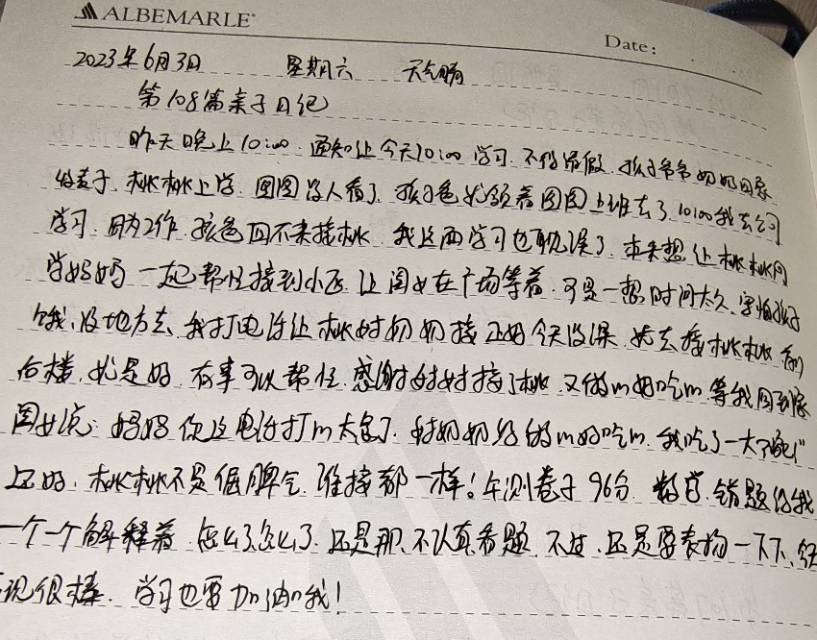 ALBEMARLE
Date:
2023年6月3日 星期六 天气晴
第108篇亲子日记
昨天晚上10:00.通知让今天10:00学习.不得请假.孩子爷爷奶奶回家
桃桃上学.圆圆没人看了.孩子爸爸领着圆圆上班去了.10:00我去公司
学习.因为工作.孩爸回不来接桃.我这面学习也耽误了.本来想让桃桃同
学妈妈一起帮忙接到小区.让闺女在广场等着.可是一想时间太久.害怕孩子
饿.没地方去.我打电话让桃 奶奶接.正好今天没课.她去接桃桃.前
后楼.就是好.有事可以帮忙.感谢 接了桃.又做m好吃m.等我回到家
闺女说:妈妈你这电话打m太急了. 奶奶给做m好吃m.我吃了一大碗"
还好.桃桃不是倔脾气.谁接都一样!年测卷子96分.数学.错题给我
一个一个解释着.怎么了怎么了.还是那.不认真看题.不过.还是要表扬一下下.
现很棒.学习也要加油哦!